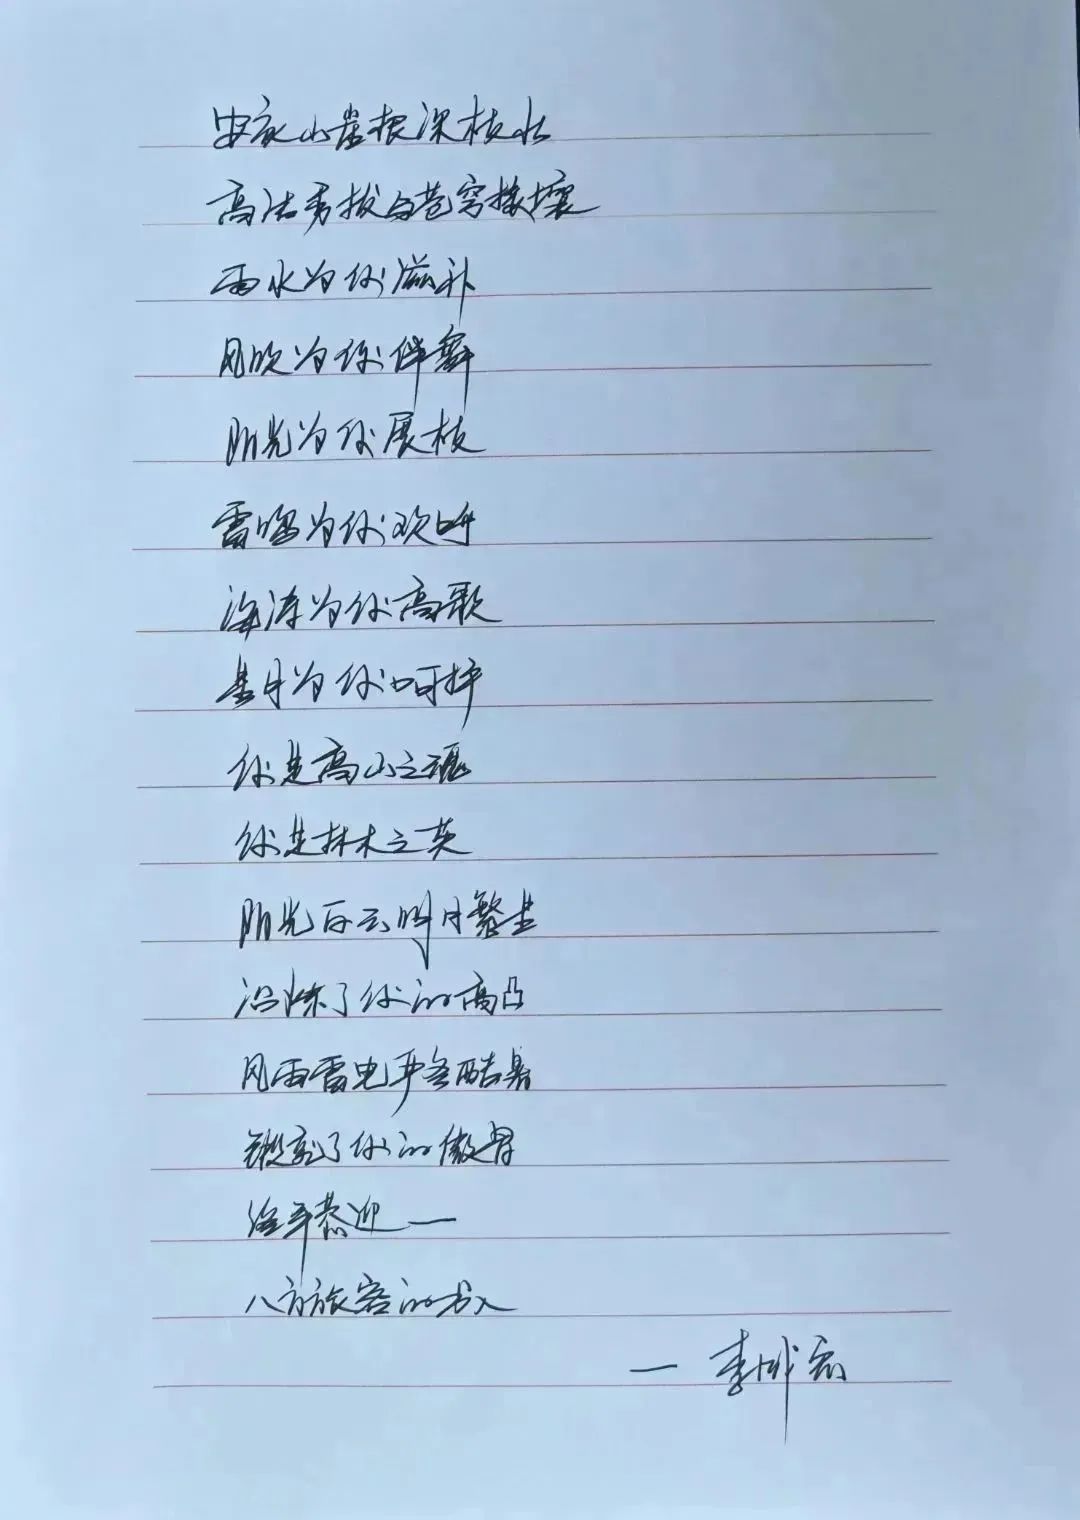 安家山崖根深枝壮
高洁秀拔与苍穹接壤
雨水为你滋补
风吹为你伴舞
阳光为你展枝
雷鸣为你欢呼
海涛为你高歌
星月为你呵护
你是高山之魂
你是林木之英
阳光白云明月繁星
沿炼了你的高凸
风雨雷电严冬酷暑
锻就了你的傲骨
终年恭迎一
八方旅客的出入
一 李成